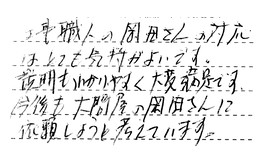 畳職人の岡田さんの対応
はとても気持がよいです。
説明もわかりやすく大変満足です。
今後も大問屋の岡田さんに
依頼しようと考えています。